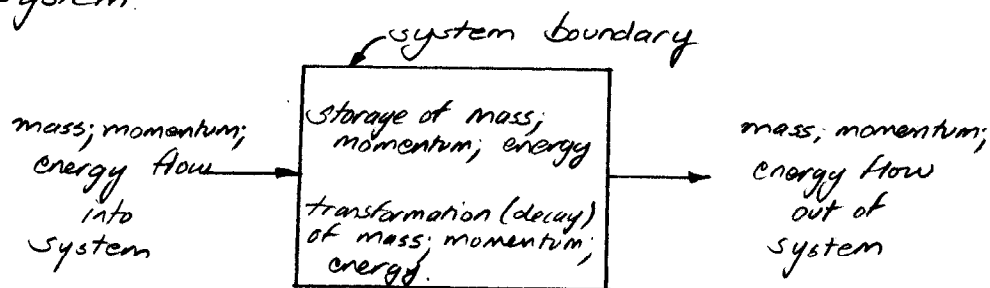 system
system boundary
mass; momentum;
energy flow
into
system
storage of mass;
momentum; energy
transformation (decay)
of mass; momentum;
energy.
mass; momentum;
energy flow
out of
system